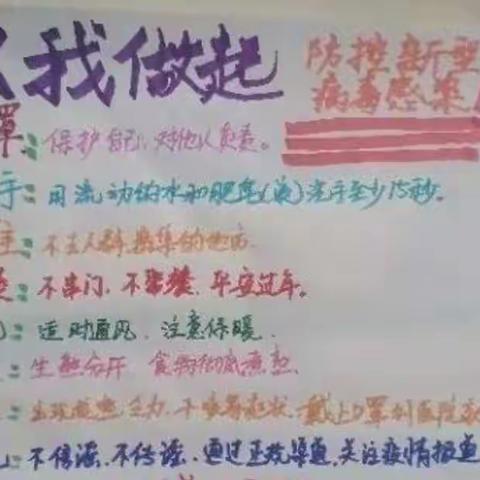 从我做起
防控新型
病毒感染
罩:保护自己、对他人负责。
手:用流动的水和肥皂(液)洗手至少15秒。
不去人群密集的地方.
不串门、不聚餐、平安过年。
适时通风、注意保暖.
生熟分开 食物彻底煮熟、
出现发热 乏力、干咳等症状、戴上口罩到医院就
不信谣、不传谣、通过正规渠道、关注疫情报道